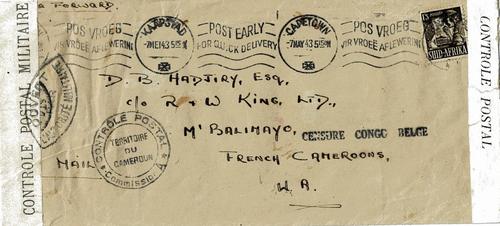 Forward.
POS VROEG
VIR VROEË AFLEWERING
KAAPSTAD
7 MEI 43
POST EARLY
FOR QUICK DELIVERY
CAPETOWN
7 MAY 43
POS VROEG
VIR VROEË AFLEWERING
1/S
SUID-AFRIKA
D. B. Hadjiry, Esq.,
c/o R & W King, Ltd.,
M'Balmayo,
CENSURE CONGO BELGE
French Cameroons,
W. A.
MAIL
CONTRÔLE POSTAL
TERRITOIRE
DU
CAMEROUN
Commission A
OUVERT
CONTROLE POSTAL MILITAIRE
CONTROLE POSTAL